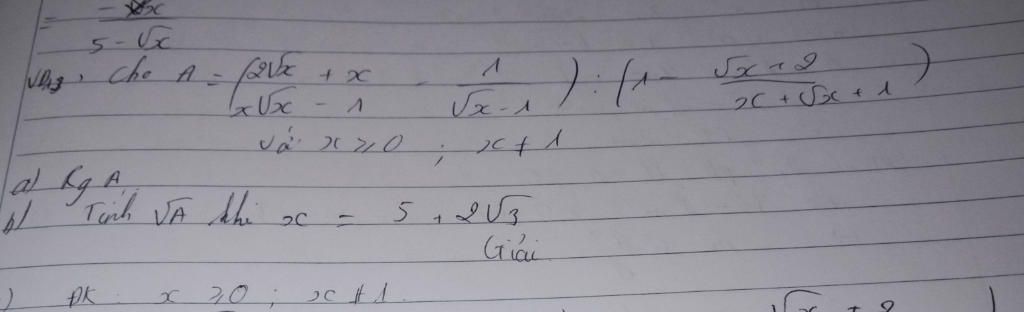 = -x / 5 - √x
VD3, Cho A = (2√x + x / x√x - 1 - 1 / √x - 1) : (1 - √x + 2 / x + √x + 1)
với x ≥ 0 ; x ≠ 1
a) Rg A
b) Tính √A khi x = 5 + 2√3
Giải
) ĐK : x ≥ 0 ; x ≠ 1
√x + 2 )